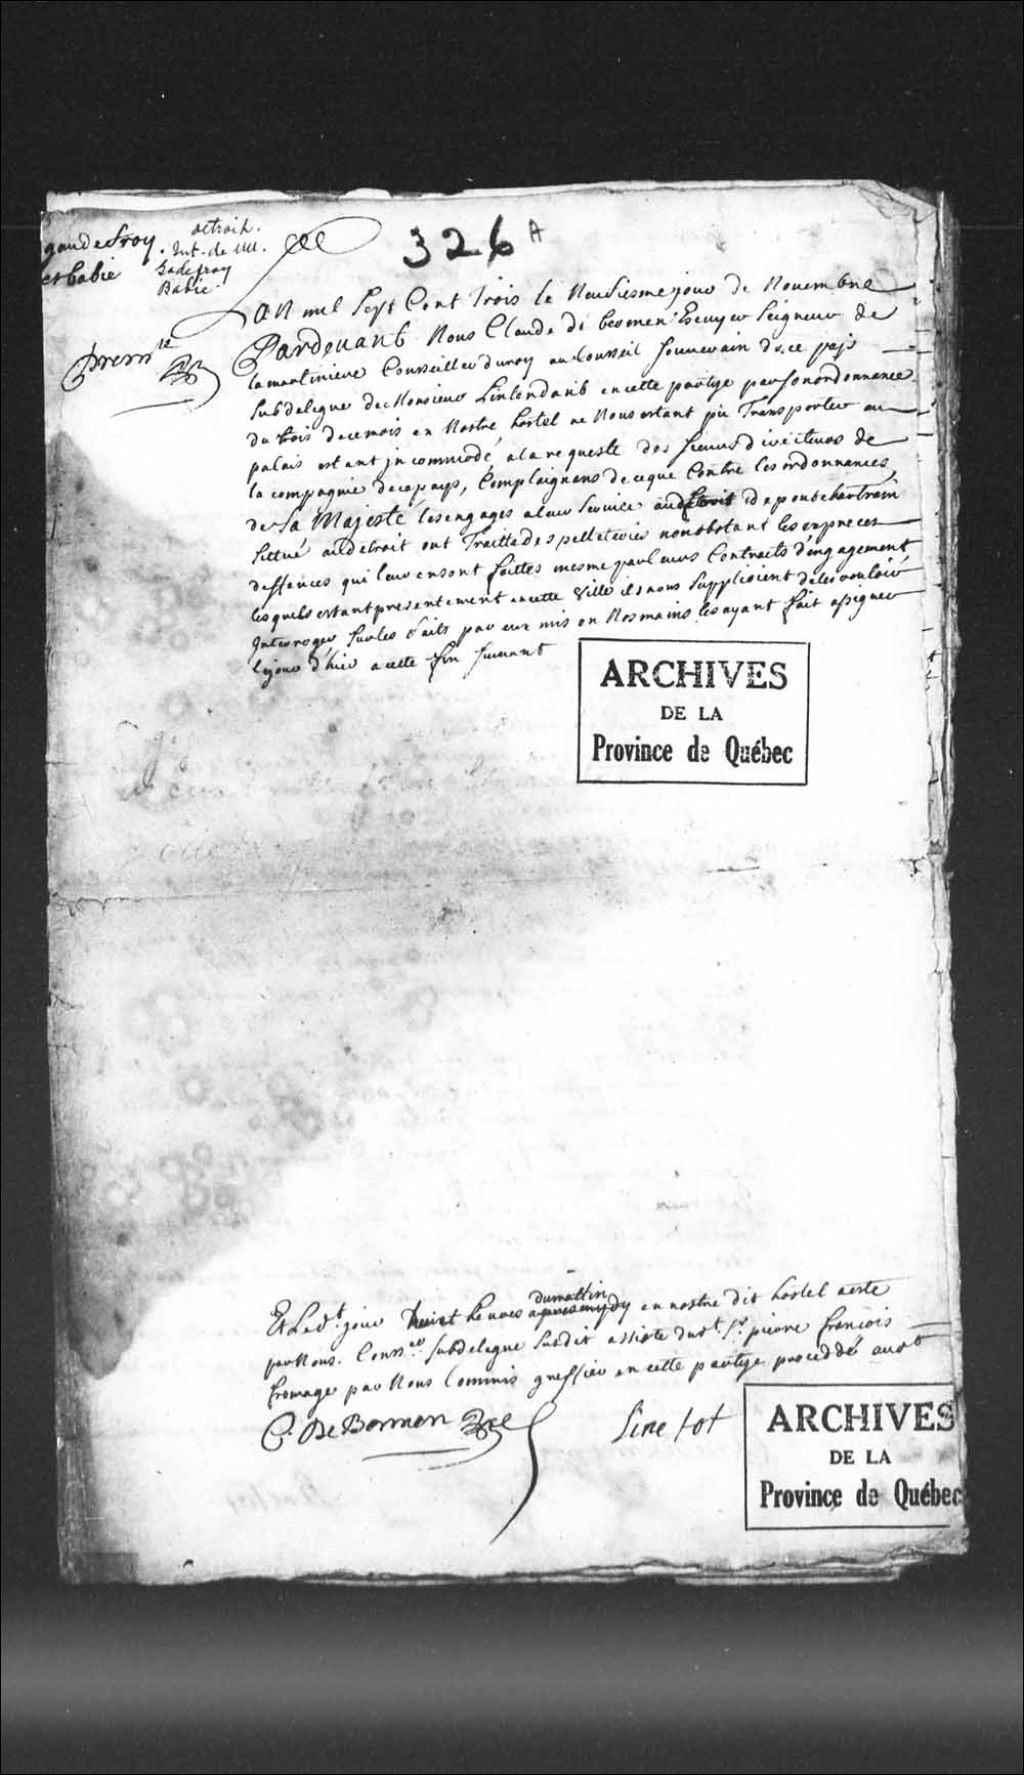 gaudefroy
et babie
detroit.
Int. de MM.
Gadefray
Babie.
326 A
premre
AN mil Sept Cent trois le Neufiesme jour de Nouembre
Pardeuant Nous Claude de bermen Escuyer Seigneur de
lamartiniere Conseiller du roy au Conseil souuerain de ce pays
subdelegué de Monsieur Lintendant en cette partye par son ordonnance
du trois de ce mois en Nostre hostel ne Nous estant pû Transporter au
palais estant jncommodé a la requeste des sieurs directeurs de
la compagnie de ce pays, Complaignans de ce que Contre les ordonnances
de Sa Majesté les engagés a leur seruice au detroit de pontchartrain
sittué au detroit ont Traitté des pelleteries nonobstant les expresses
deffences qui leur en sont faittes mesme par leurs Contracts d'engagement
lesquels estant presentement en cette Ville ils nous supplioient de les vouloir
Interroger sur les faits par eux mis en Nos mains les ayant fait assigner
le jour d'hier a cette fin suiuant
ARCHIVES
DE LA
Province de Québec
Et Ledt. jour huict heures du mattin apres midy en nostre dit hostel a esté
par Nous. Conser. subdelegué susdit assisté dudt. Sr. pierre francois
fromage par Nous Commis greffier en cette partye proceddé audt
C. De Bermen
Linetot
ARCHIVES
DE LA
Province de Québec